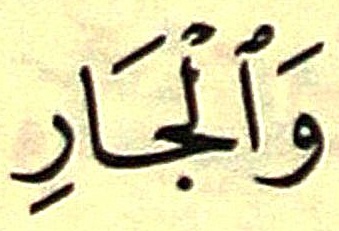 وَٱلْجَارِ